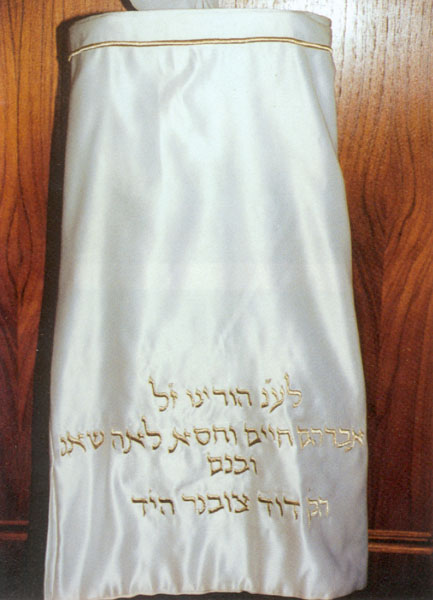 לע"נ הורינו ז"ל
אברהם חיים וחסא לאה
ובנם
דוד צובנר הי"ד